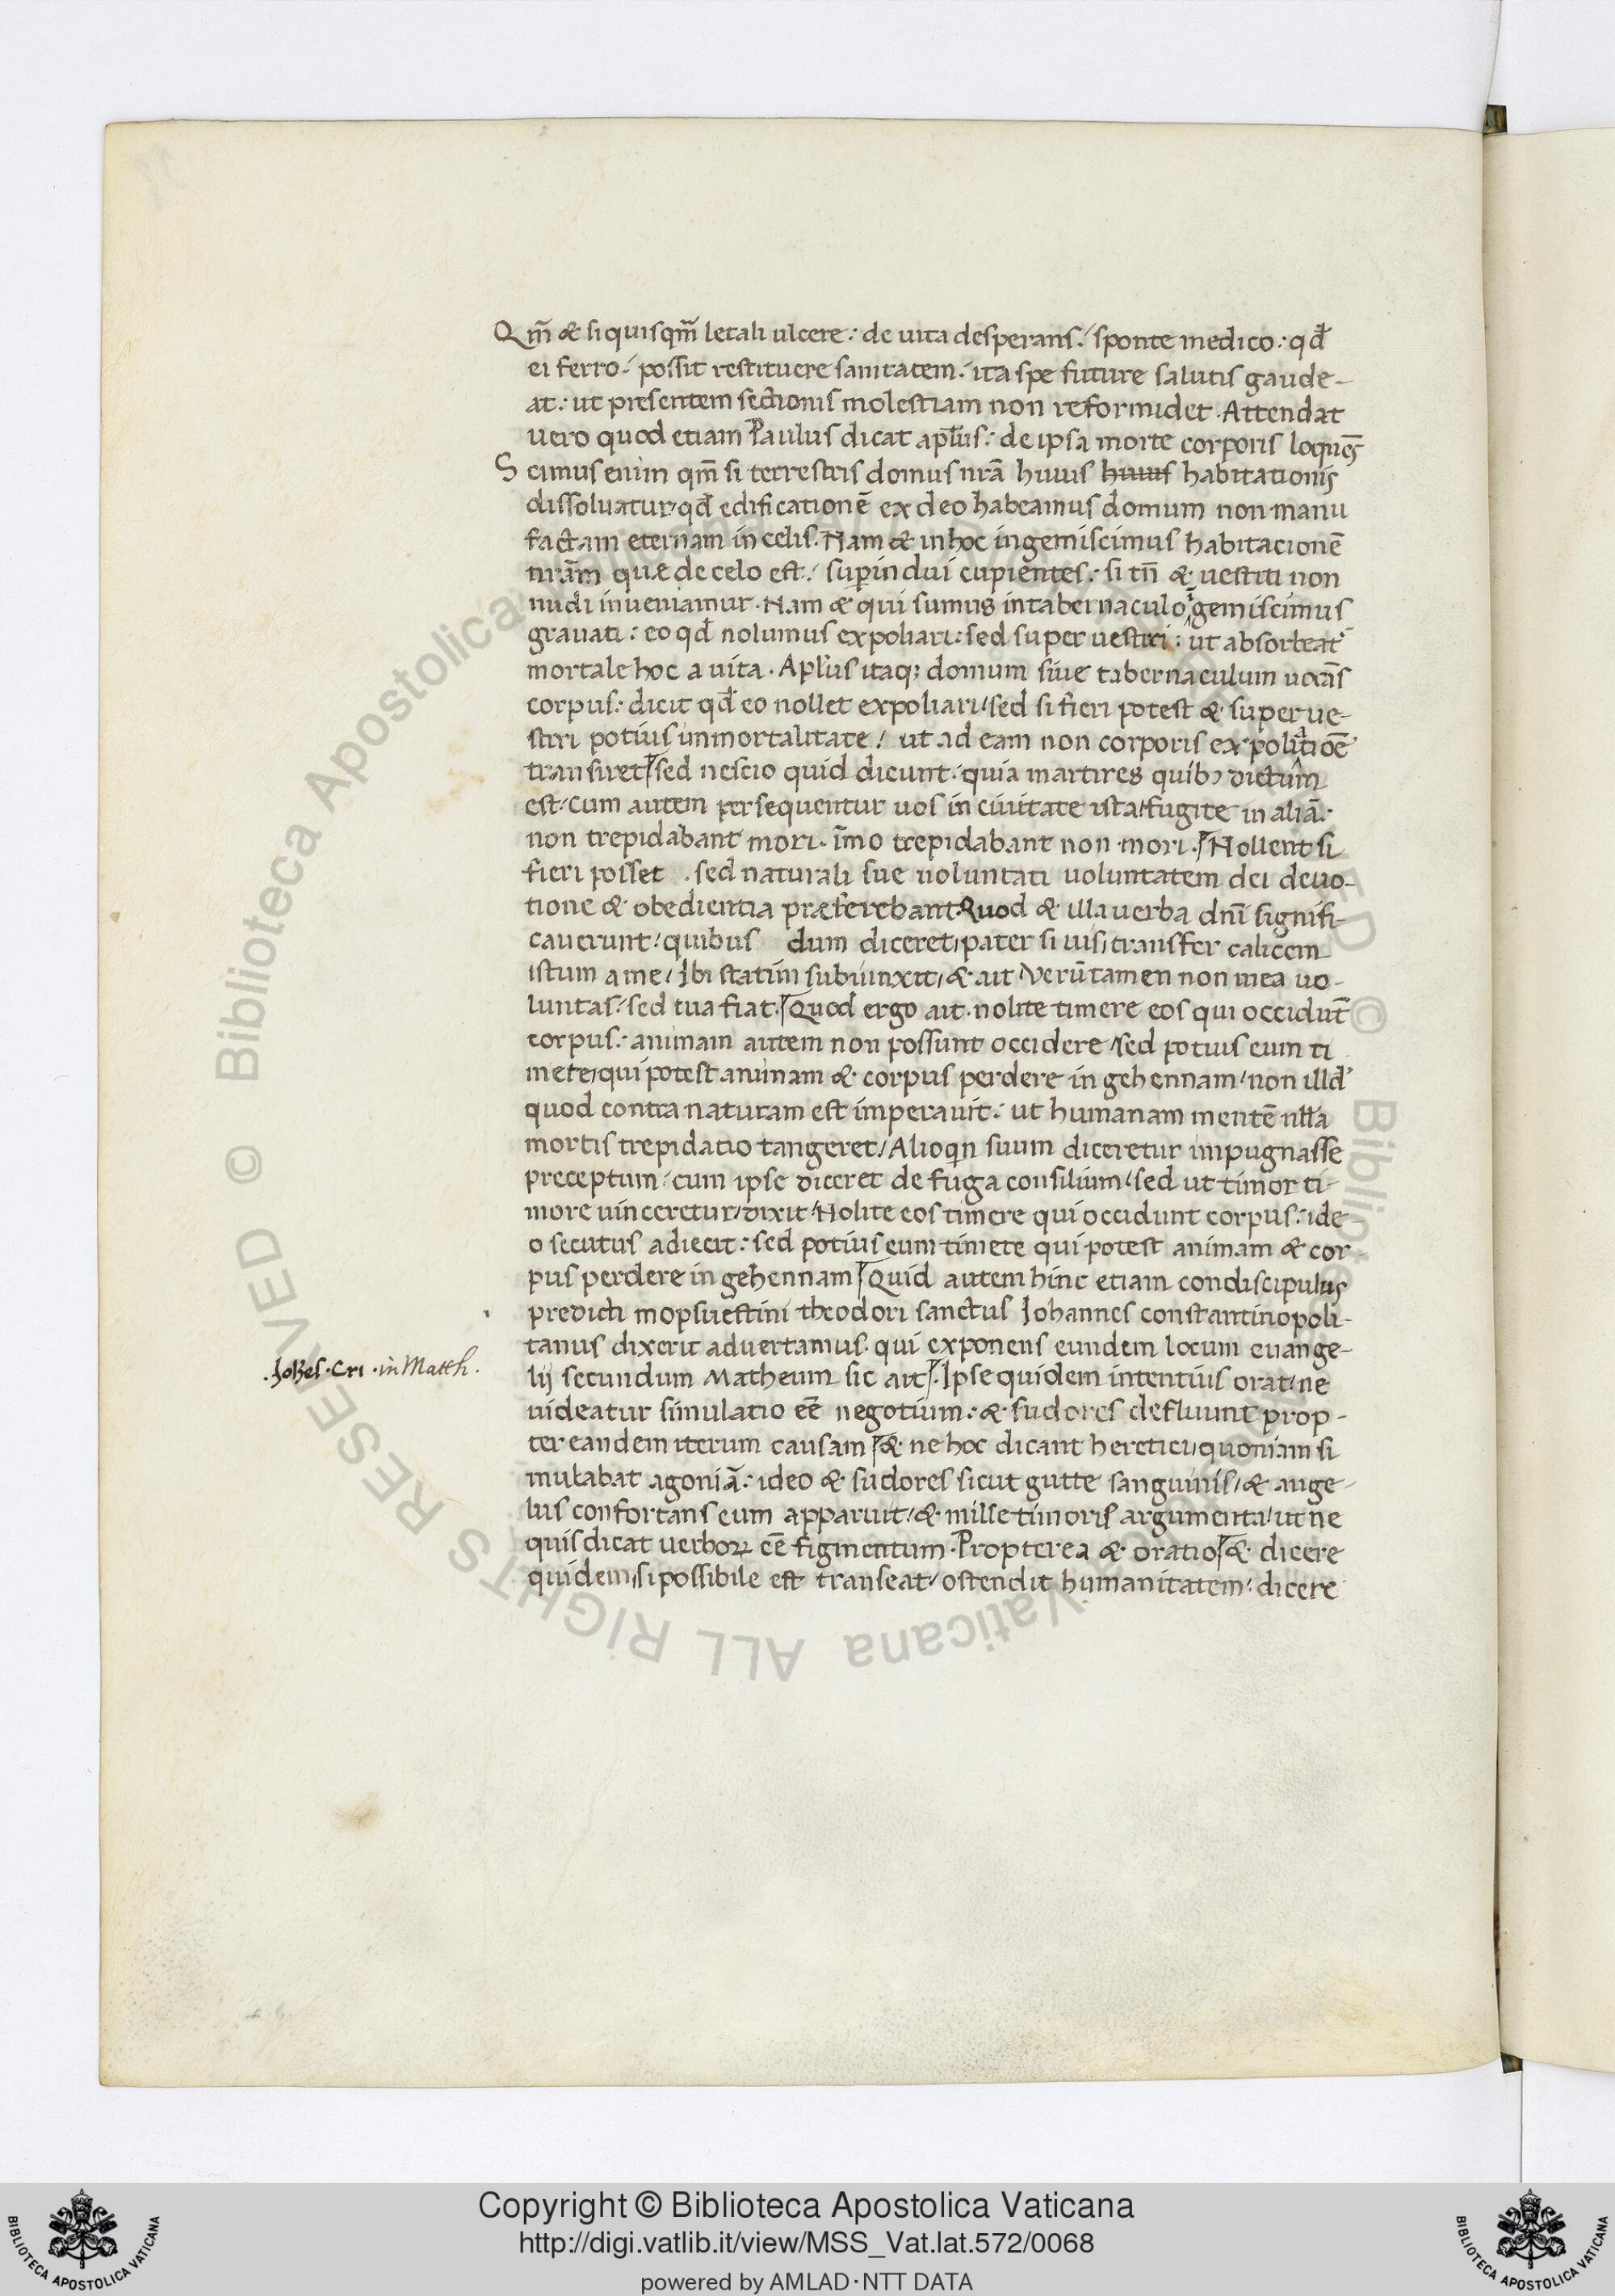 Qm̄ & si quisqm̄ letali ulcere: de uita desperans: sponte medico: qđ
ei ferro: possit restituere sanitatem: ita spe future salutis gaude-
at: ut presentem sectionis molestiam non reformidet. Attendat
uero quod etiam Paulus dicat apl̄us: de ipsa morte corporis loquēs
Scimus enim qm̄ si terrestris domus nrā huius huius habitationis
dissoluatur, qđ edificationē ex deo habeamus domum non manu
factam eternam in celis. Nam & in hoc ingemiscimus habitacionē
nrām quæ de celo est: superindui cupientes: si tn̄ & uestiti non
nudi inueniamur. Nam & qui sumus in tabernaculo īgemiscimus
grauati: eo qđ nolumus expoliari: sed superuestiri: ut absorbeat'
mortale hoc a uita. Apl̄us itaq; domum siue tabernaculum uocās
corpus: dicit qđ eo nollet expoliari, sed si fieri potest & superue-
stiri potius immortalitate: ut ad eam non corporis expoliatiōe
transiret sed nescio quid dicunt: quia martires quibꝫ dictum
est: cum autem persequentur uos in ciuitate ista, fugite in aliā:
non trepidabant mori. īmo trepidabant non mori. Nollent si
fieri posset . sed naturali sue uoluntati uoluntatem dei deuo-
tione & obedientia præferebant. Quod & illa uerba dn̄i signifi-
cauerunt: quibus dum diceret, pater si uis, transfer calicem
istum a me, Ibi statim subiunxit, & ait, Verūtamen non mea uo-
luntas, sed tua fiat. Quod ergo ait. nolite timere eos qui occidūt
corpus: animam autem non possunt occidere, sed potius eum ti
mete, qui potest animam & corpus perdere in gehennam, non illđ
quod contra naturam est imperauit: ut humanam mentē nll̄a
mortis trepidatio tangeret, Alioqn suum diceretur impugnasse
preceptum: cum ipse diceret de fuga consilium, sed ut timor ti-
more uinceretur, dixit, Nolite eos timere qui occidunt corpus: ide-
o secutus adiecit: sed potius eum timete qui potest animam & cor-
pus perdere in gehennam Quid autem hinc etiam condiscipulus
predicti mopsuestini theodori sanctus Iohannes constantinopoli-
tanus dixerit aduertamus. qui exponens eundem locum euange-
.Johēs. Cri. in Matth.
lij secundum Matheum sic ait. Ipse quidem intentius orat, ne
uideatur simulatio eē negotium: & sudores defluunt prop-
ter eandem iterum causam & ne hoc dicant heretici, quoniam si
mulabat agoniā: ideo & sudores sicut gutte sanguinis, & ange-
lus confortans eum apparuit, & mille timoris argumenta, ut ne
quis dicat uerboꝝ eē figmentum. Propterea & oratio & dicere
quidem, si possibile est transeat, ostendit humanitatem: dicere
Copyright © Biblioteca Apostolica Vaticana
http://digi.vatlib.it/view/MSS_Vat.lat.572/0068
powered by AMLAD·NTT DATA
BIBLIOTECA APOSTOLICA VATICANA
BIBLIOTECA APOSTOLICA VATICANA
© Biblioteca Apostolica Vaticana ALL RIGHTS RESERVED